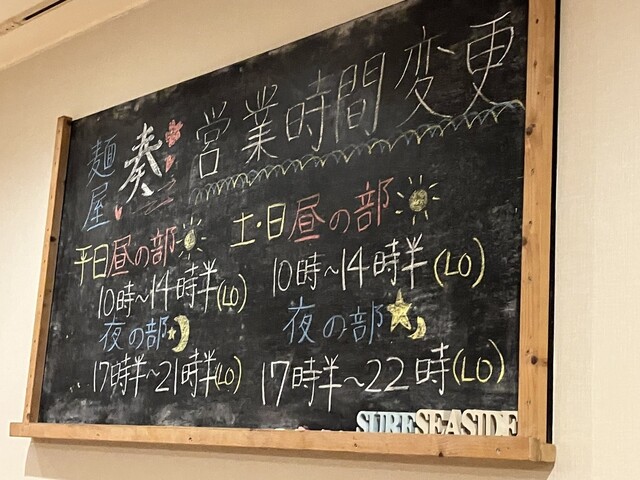 麺屋 奏 営業時間変更
平日昼の部
10時~14時半(LO)
夜の部
17時半~21時半(LO)
土・日昼の部
10時~14時半(LO)
夜の部
17時半~22時(LO)
SURF SEASIDE